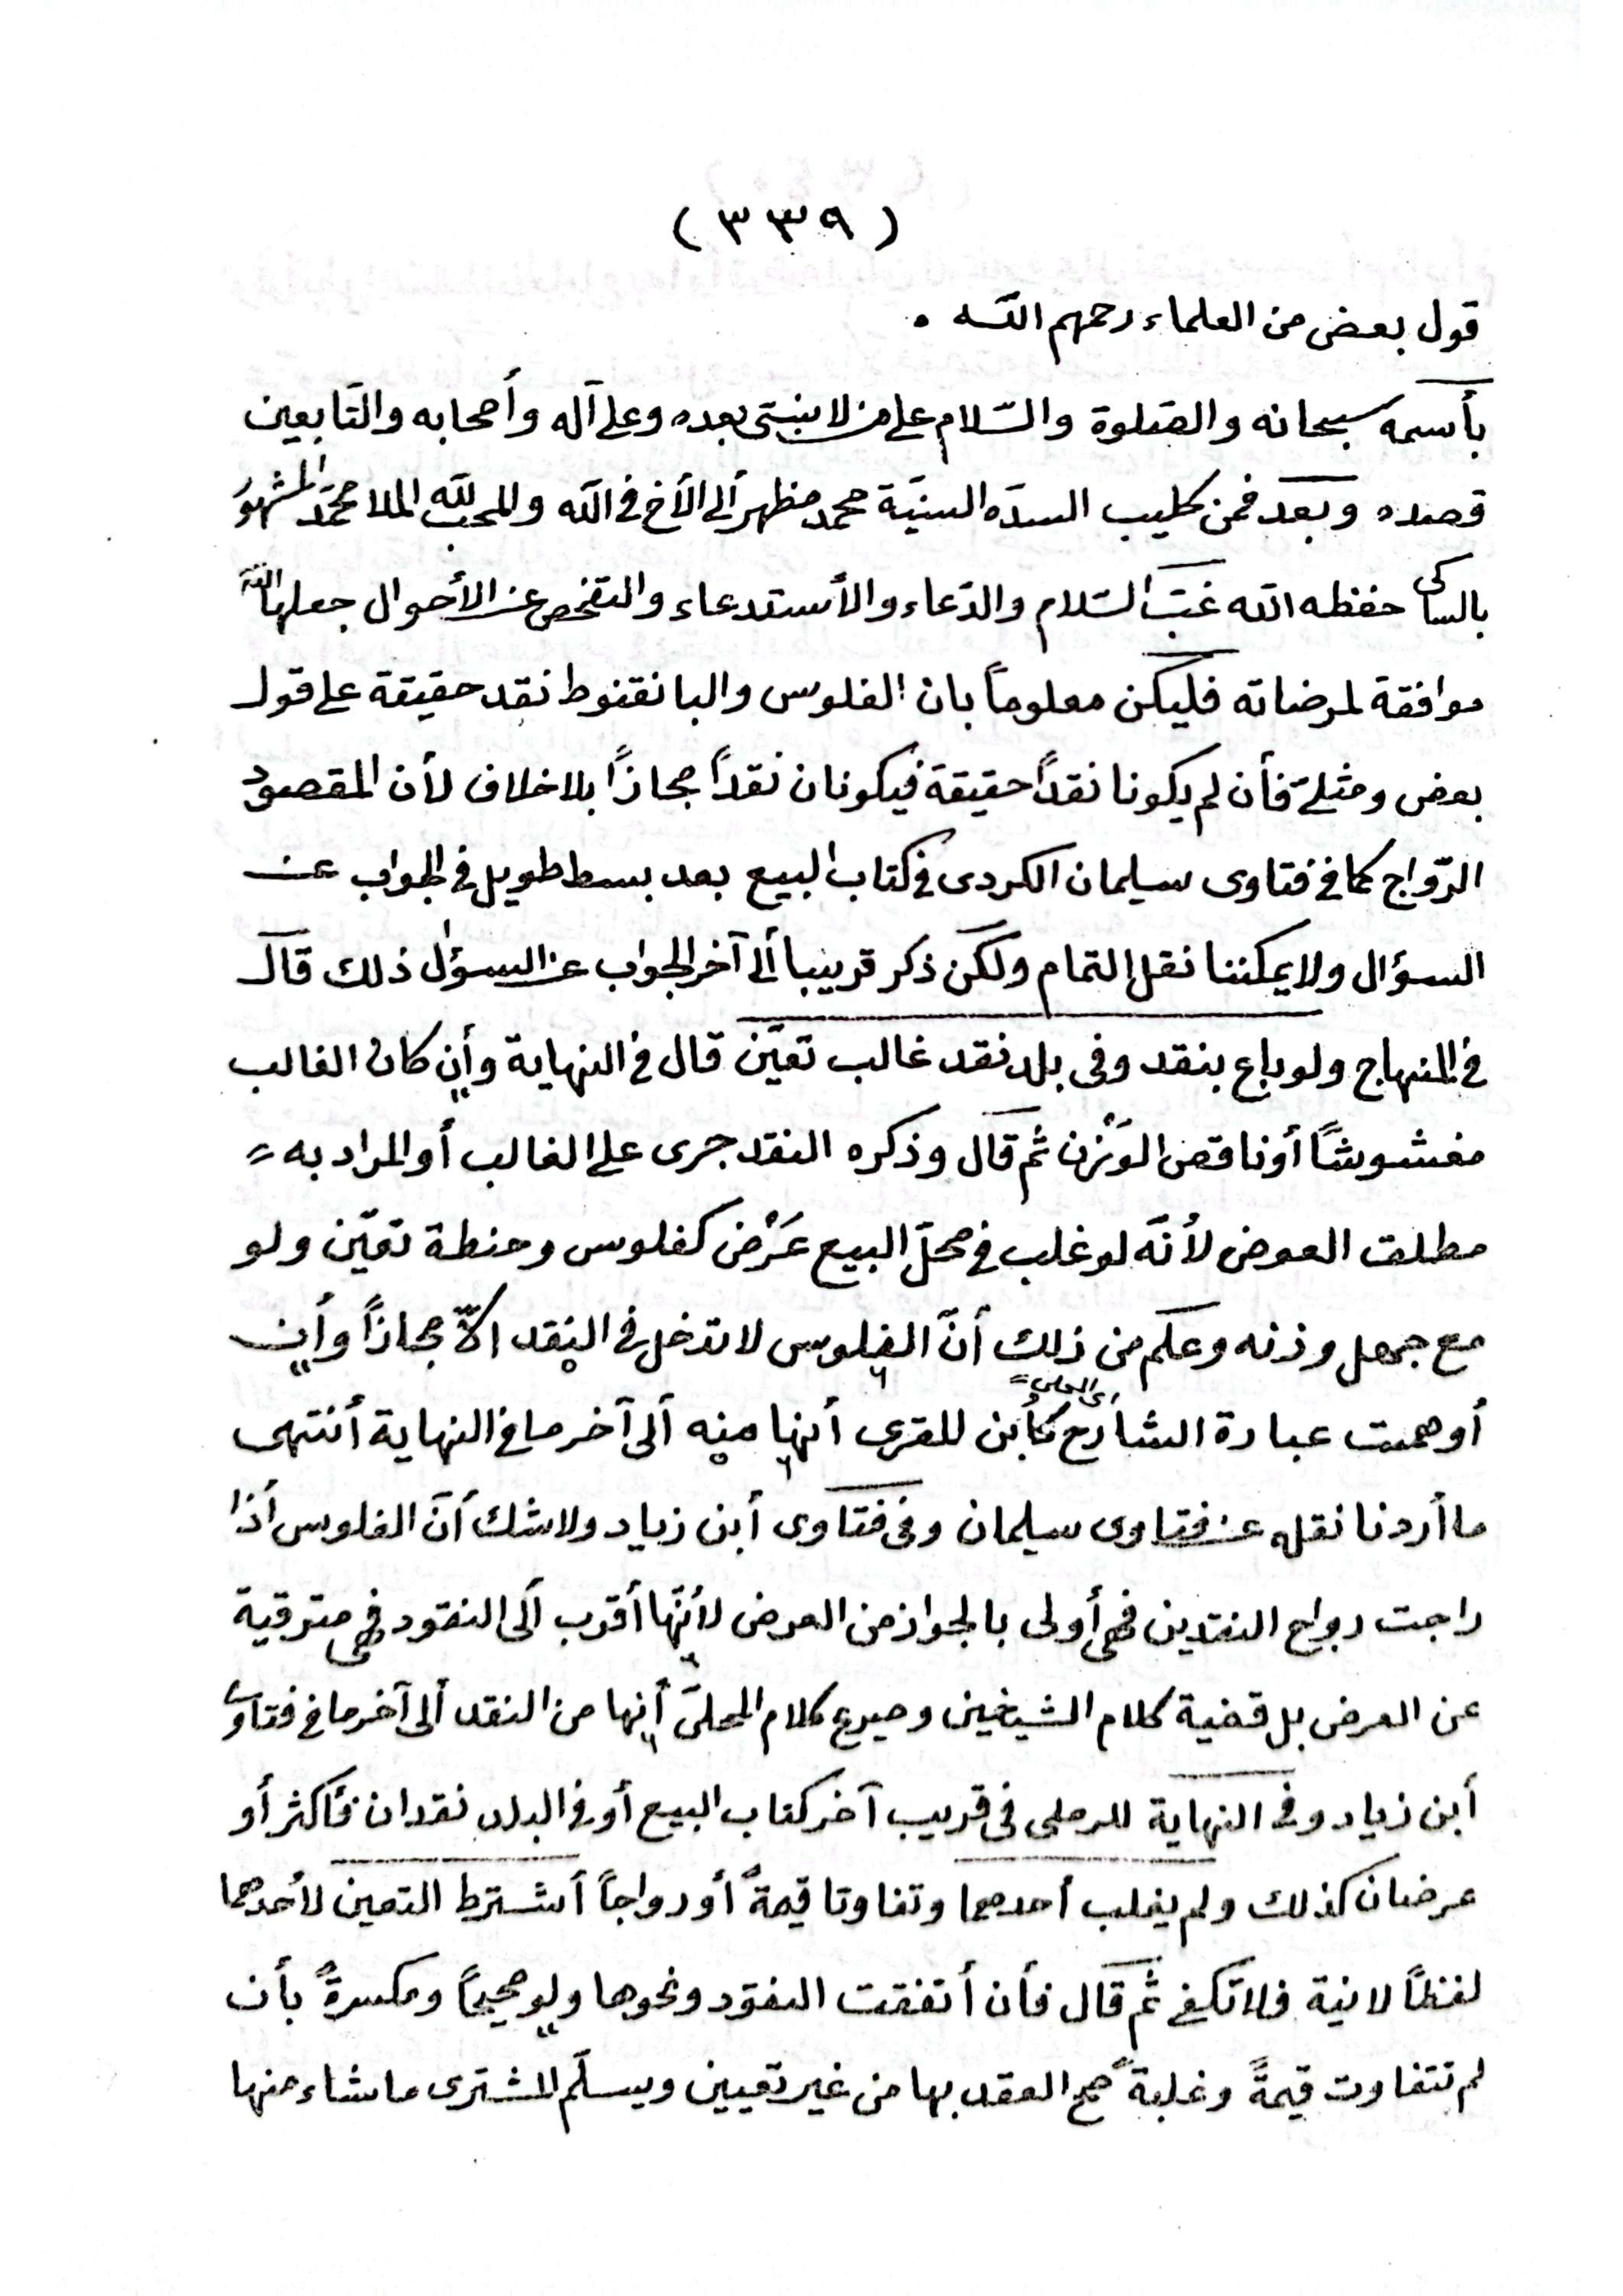 ( ٣٣٩ )
قول بعض من العلماء رحمهم الله .
بأسمه سبحانه والصّلوة والسّلام على من لا نبيّ بعده وعلى آله وأصحابه والتّابعين
قصده وبعد فمن كليب السدّه السنيّة محمد مظهر ألى الأخ فى الله والمحب لله الملا محمّد المشهور
بالساكى حفظه الله غبّ السّلام والدّعاء والأستدعاء والتفحص عن الأحوال جعلها الله
موافقة لمرضاته فليكن معلوماً بان الفلوس والبانقنوط نقد حقيقة على قول
بعض ومثليّ فأن لم يكونا نقداً حقيقة فيكونان نقداً مجازاً بلا خلاف لأن المقصود
الرّواج كما فى فتاوى سليمان الكردى فى كتاب البيع بعد بسط طويل فى الجواب عن
السؤال ولا يمكننا نقل التمام ولكن ذكر قريبا ألى آخر الجواب عن السؤال ذلك قال
فى المنهاج ولو باع بنقد وفى بلد نقد غالب تعيّن قال فى النهاية وأن كان الغالب
مغشوشًا أو ناقص الوَزْن ثم قال وذكره النقد جرى على الغالب أو المراد به
مطلق العوض لأنّه لو غلب فى محلّ البيع عَرْض كفلوس وحنطة تعيّن ولو
مع جهل وزنه وعلم من ذلك أنّ الفلوس لا تدخل فى النقد الّا مجازاً وأن
أوهمت عبارة الشارح كأبن المقرى أنها منه ألى آخر ما فى النهاية أنتهى
اى المحلى
ما أردنا نقله عن فتاوى سليمان وفى فتاوى أبن زياد ولا شك أنّ الفلوس أذا
راجت رواج النقدين فهى أولى بالجواز من العرض لأنّها أقرب ألى النقود فهى مترقية
عن العرض بل قضية كلام الشيخين وصريح كلام المحلىّ أنها من النقد ألى آخر ما فى فتاوى
أبن زياد وفى النهاية للرملى فى قريب آخر كتاب البيع أو فى البلد نقدان فأكثر أو
عرضان كذلك ولم يغلب أحدهما وتفاوتا قيمةً أو رواجاً أشترط التعين لأحدهما
لفظاً لا نية فلا تكفى ثم قال فأن أتفقت النقود ونحوها ولو صحيحاً ومكسرةً بأن
لم تتفاوت قيمةً وغلبةً صح العقد بها من غير تعيين ويسلّم المشترى ما شاء منها